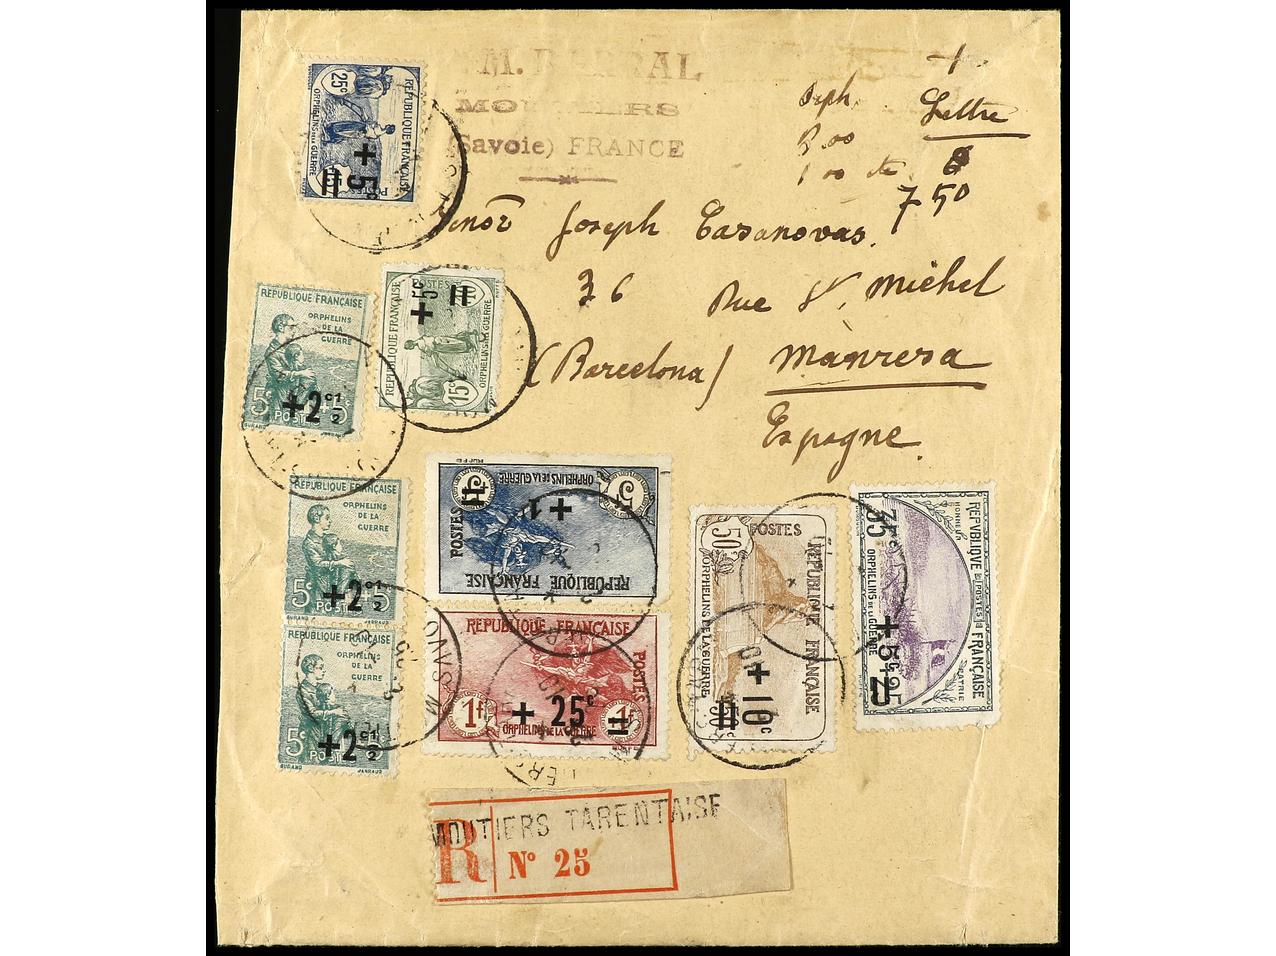 MOUTIERS
(Savoie) FRANCE
Lettre
7 50
Joseph Casanovas.
36 Rue St Michel
(Barcelona) Manresa
Espagne
25c
REPUBLIQUE FRANÇAISE
ORPHELINS DE LA GUERRE
POSTES
+ 5c
REPUBLIQUE FRANÇAISE
POSTES
ORPHELINS DE LA GUERRE
15c
+ 5c
REPUBLIQUE FRANÇAISE
ORPHELINS
DE LA
GUERRE
5c
POSTES
+2c 1/2
REPUBLIQUE FRANÇAISE
ORPHELINS
DE LA
GUERRE
5c 5
POSTES
+2c 1/2
BURAND JARRAUD
REPUBLIQUE FRANÇAISE
ORPHELINS
DE LA
GUERRE
5c
POSTES
+2c 1/2
BURAND JARRAUD
ORPHELINS DE LA GUERRE
5f
POSTES
REPUBLIQUE FRANÇAISE
REPUBLIQUE FRANÇAISE
POSTES
1f
+ 25c
ORPHELINS DE LA GUERRE
50c
POSTES
REPUBLIQUE FRANÇAISE
ORPHELINS DE LA GUERRE
+ 10c
35c
HONNEUR
PATRIE
REPUBLIQUE FRANÇAISE
POSTES
ORPHELINS DE LA GUERRE
+ 5c
25
MOUTIERS TARENTAISE
R No 25